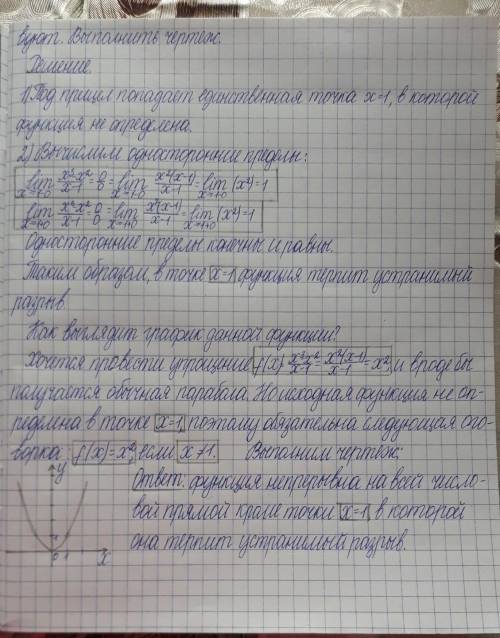 вуют. Выполнить чертеж.
Решение.
1) Под прицел попадает единственная точка x=1, в которой
функция не определена.
2) Вычислим односторонние пределы:
lim x→1-0 x³-x²/x-1 = 0/0 = lim x→1-0 x²(x-1)/x-1 = lim x→1-0 (x²)=1
lim x→1+0 x³-x²/x-1 = 0/0 = lim x→1+0 x²(x-1)/x-1 = lim x→1+0 (x²)=1
Односторонние пределы конечны и равны.
Таким образом, в точке x=1 функция терпит устранимый
разрыв.
Как выглядит график данной функции?
Хочется провести упрощение f(x) x³-x²/x-1 = x²(x-1)/x-1 = x², и вроде бы
получается обычная парабола. Но исходная функция не оп-
ределена в точке x=1, поэтому обязательна следующая ого-
ворка: f(x)=x², если x≠1. Выполним чертеж:
y
Ответ: функция непрерывна на всей число-
вой прямой кроме точки x=1, в которой
она терпит устранимый разрыв.
1
0 1 x